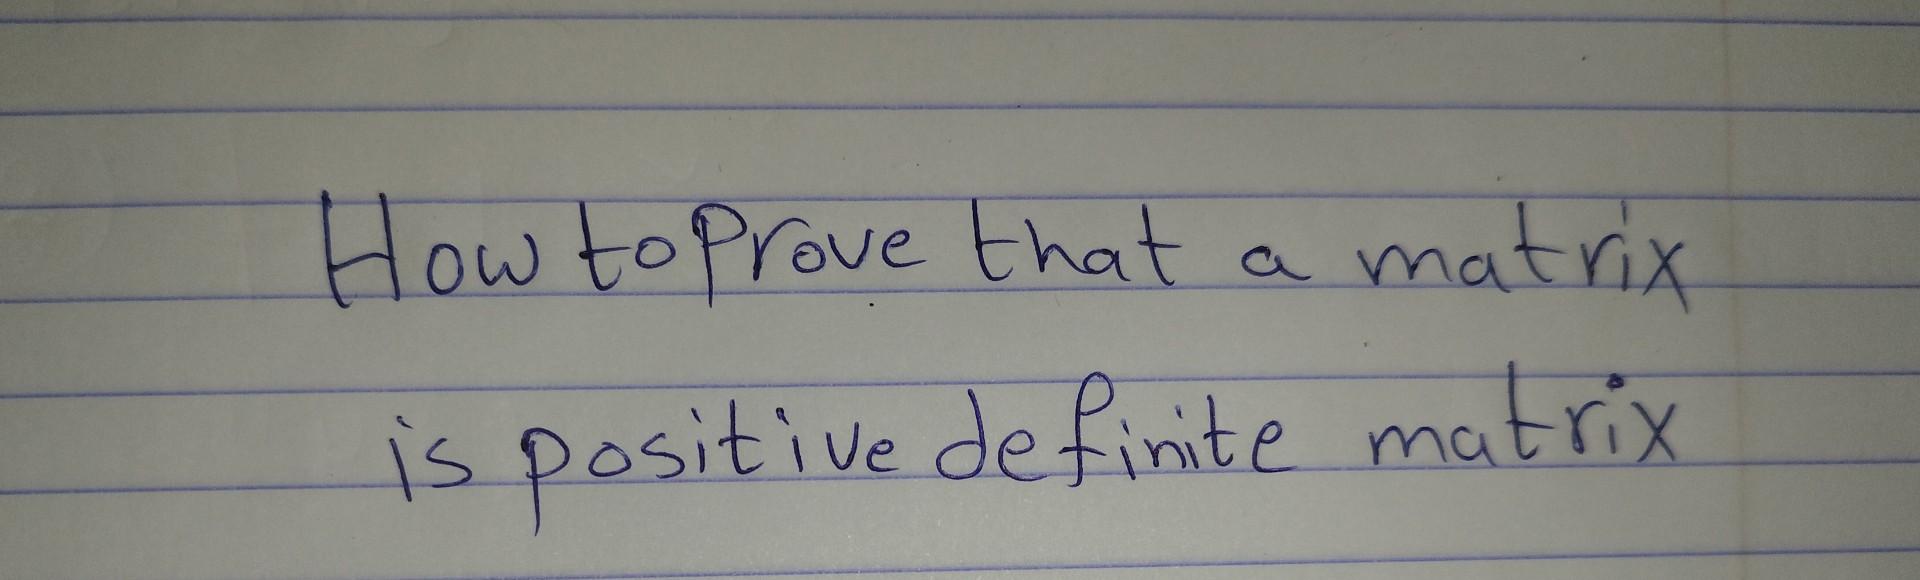 How to Prove that a matrix
is positive definite matrix